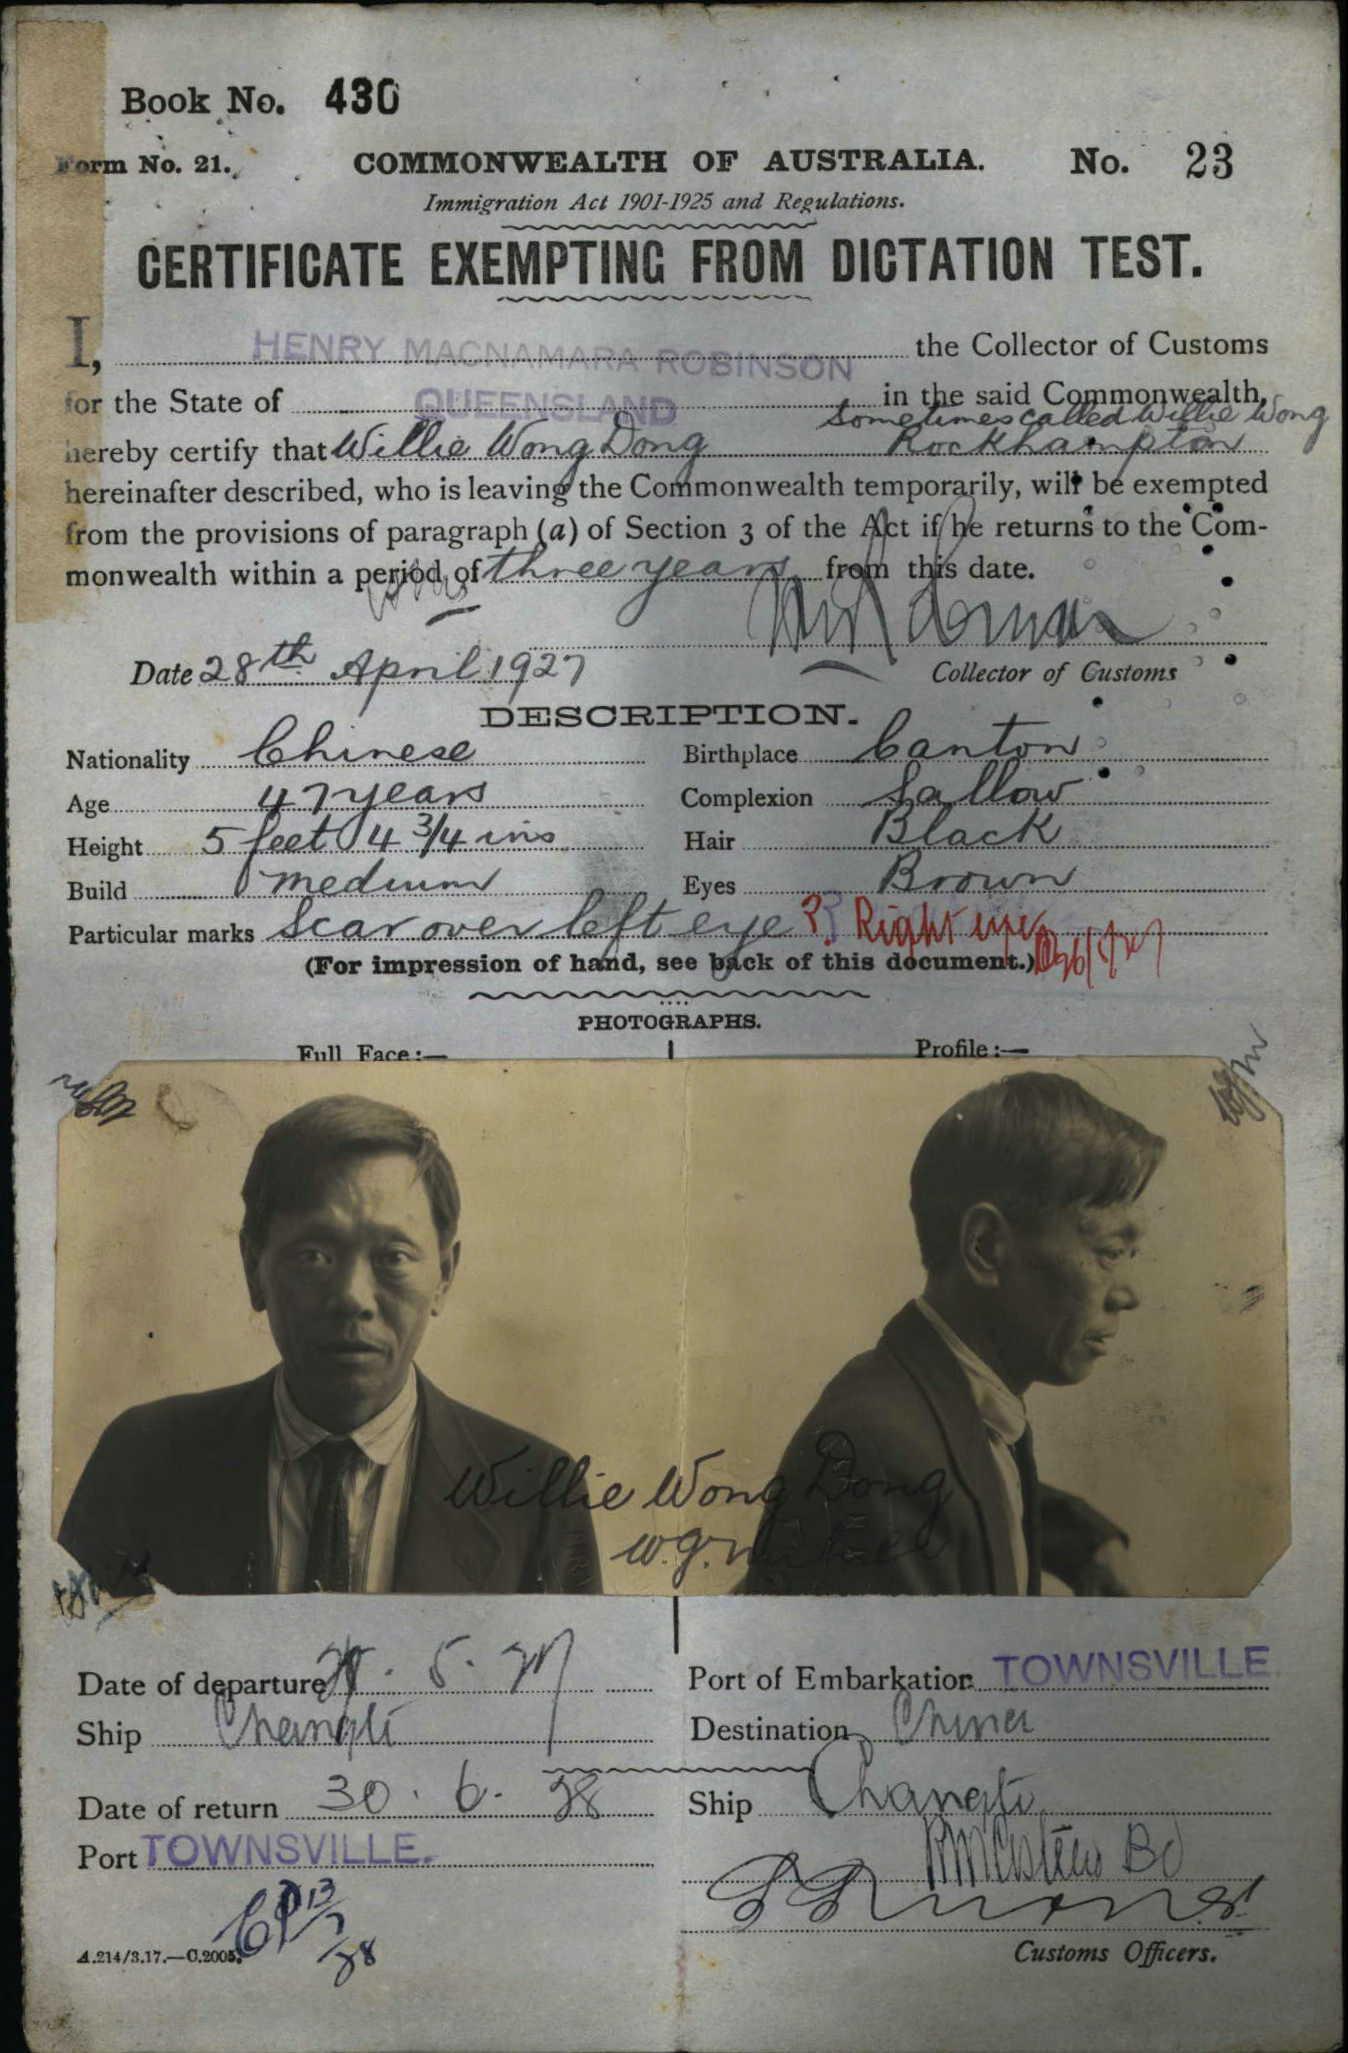 Book No. 430
Form No. 21. COMMONWEALTH OF AUSTRALIA. No. 23
Immigration Act 1901-1925 and Regulations.
CERTIFICATE EXEMPTING FROM DICTATION TEST.
I, HENRY MACNAMARA ROBINSON the Collector of Customs
for the State of QUEENSLAND in the said Commonwealth,
sometimes called Willie Wong
hereby certify that Willie Wong Dong Rockhampton
hereinafter described, who is leaving the Commonwealth temporarily, will be exempted
from the provisions of paragraph (a) of Section 3 of the Act if he returns to the Com-
monwealth within a period of three years from this date.
Date 28th April 1927
Collector of Customs
DESCRIPTION.
Nationality Chinese Birthplace Canton
Age 47 years Complexion Sallow
Height 5 feet 4 3/4 ins Hair Black
Build medium Eyes Brown
Particular marks Scar over left eye ?. Right eye
(For impression of hand, see back of this document.)
PHOTOGRAPHS.
Full Face:— Profile:—
Willie Wong Dong
W.G.
Date of departure 5. 27 Port of Embarkation TOWNSVILLE
Ship Changte Destination China
Date of return 30. 6. 28 Ship Changte
Port TOWNSVILLE.
13/7/28
A.214/3.17.—C.2005. Customs Officers.